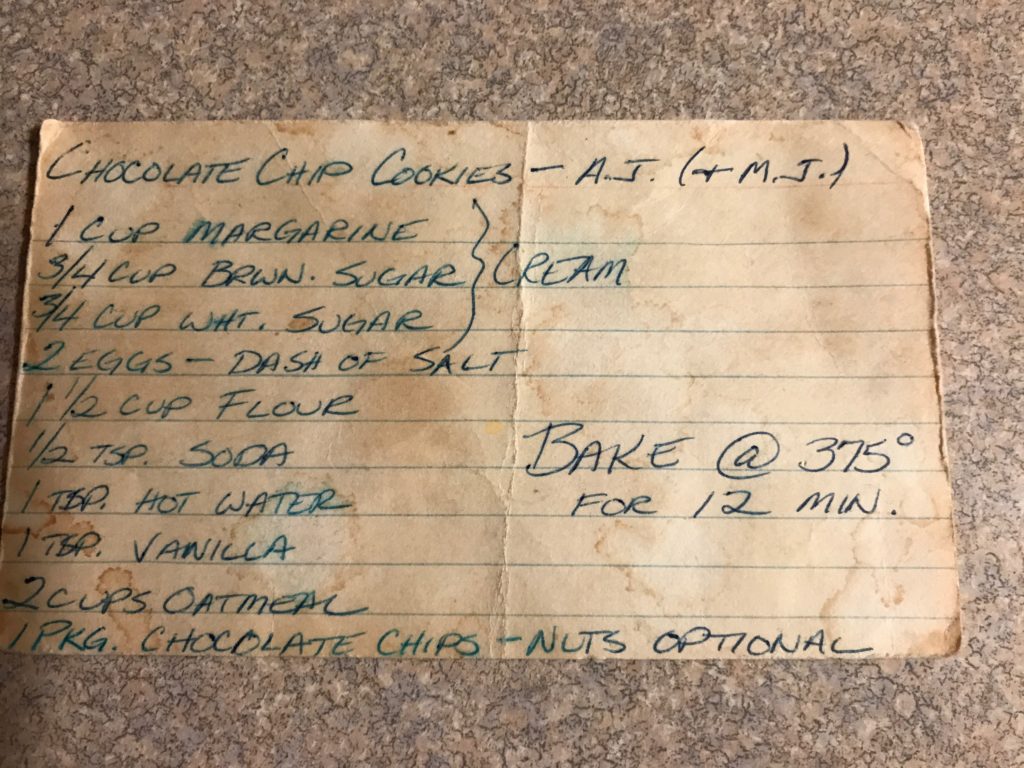 CHOCOLATE CHIP COOKIES – A.J. (+ M.J.)
1 CUP MARGARINE
3/4 CUP BRWN. SUGAR } CREAM
3/4 CUP WHT. SUGAR
2 EGGS – DASH OF SALT
1 1/2 CUP FLOUR
1/2 TSP. SODA
BAKE @ 375°
1 TSP. HOT WATER
FOR 12 MIN.
1 TSP. VANILLA
2 CUPS OATMEAL
1 PKG. CHOCOLATE CHIPS – NUTS OPTIONAL